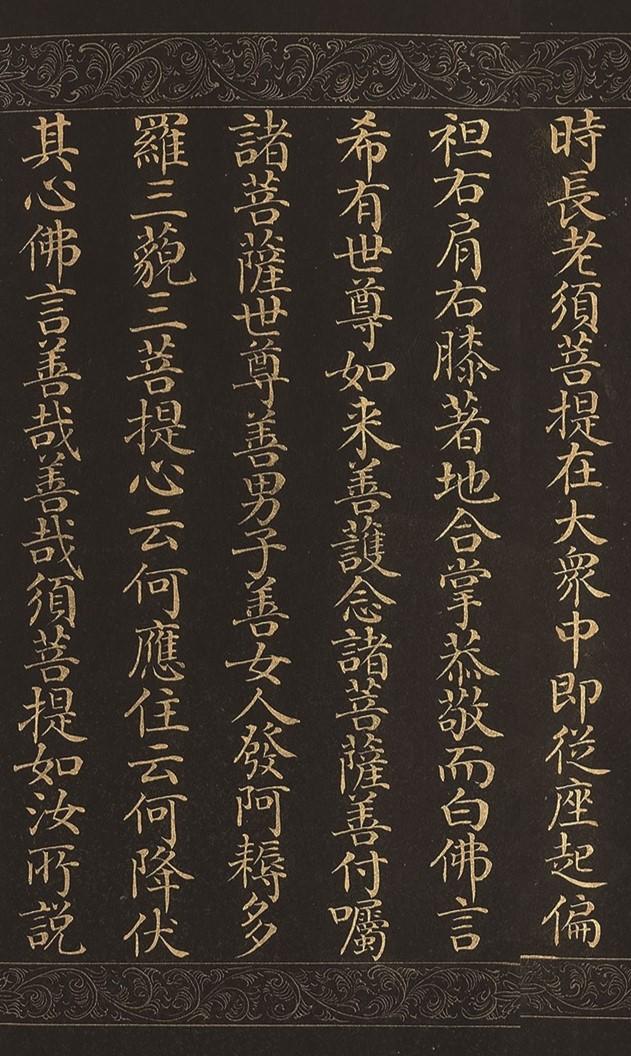 時長老須菩提在大衆中即從座起偏
袒右肩右膝著地合掌恭敬而白佛言
希有世尊如来善護念諸菩薩善付囑
諸菩薩世尊善男子善女人發阿耨多
羅三藐三菩提心云何應住云何降伏
其心佛言善哉善哉須菩提如汝所説